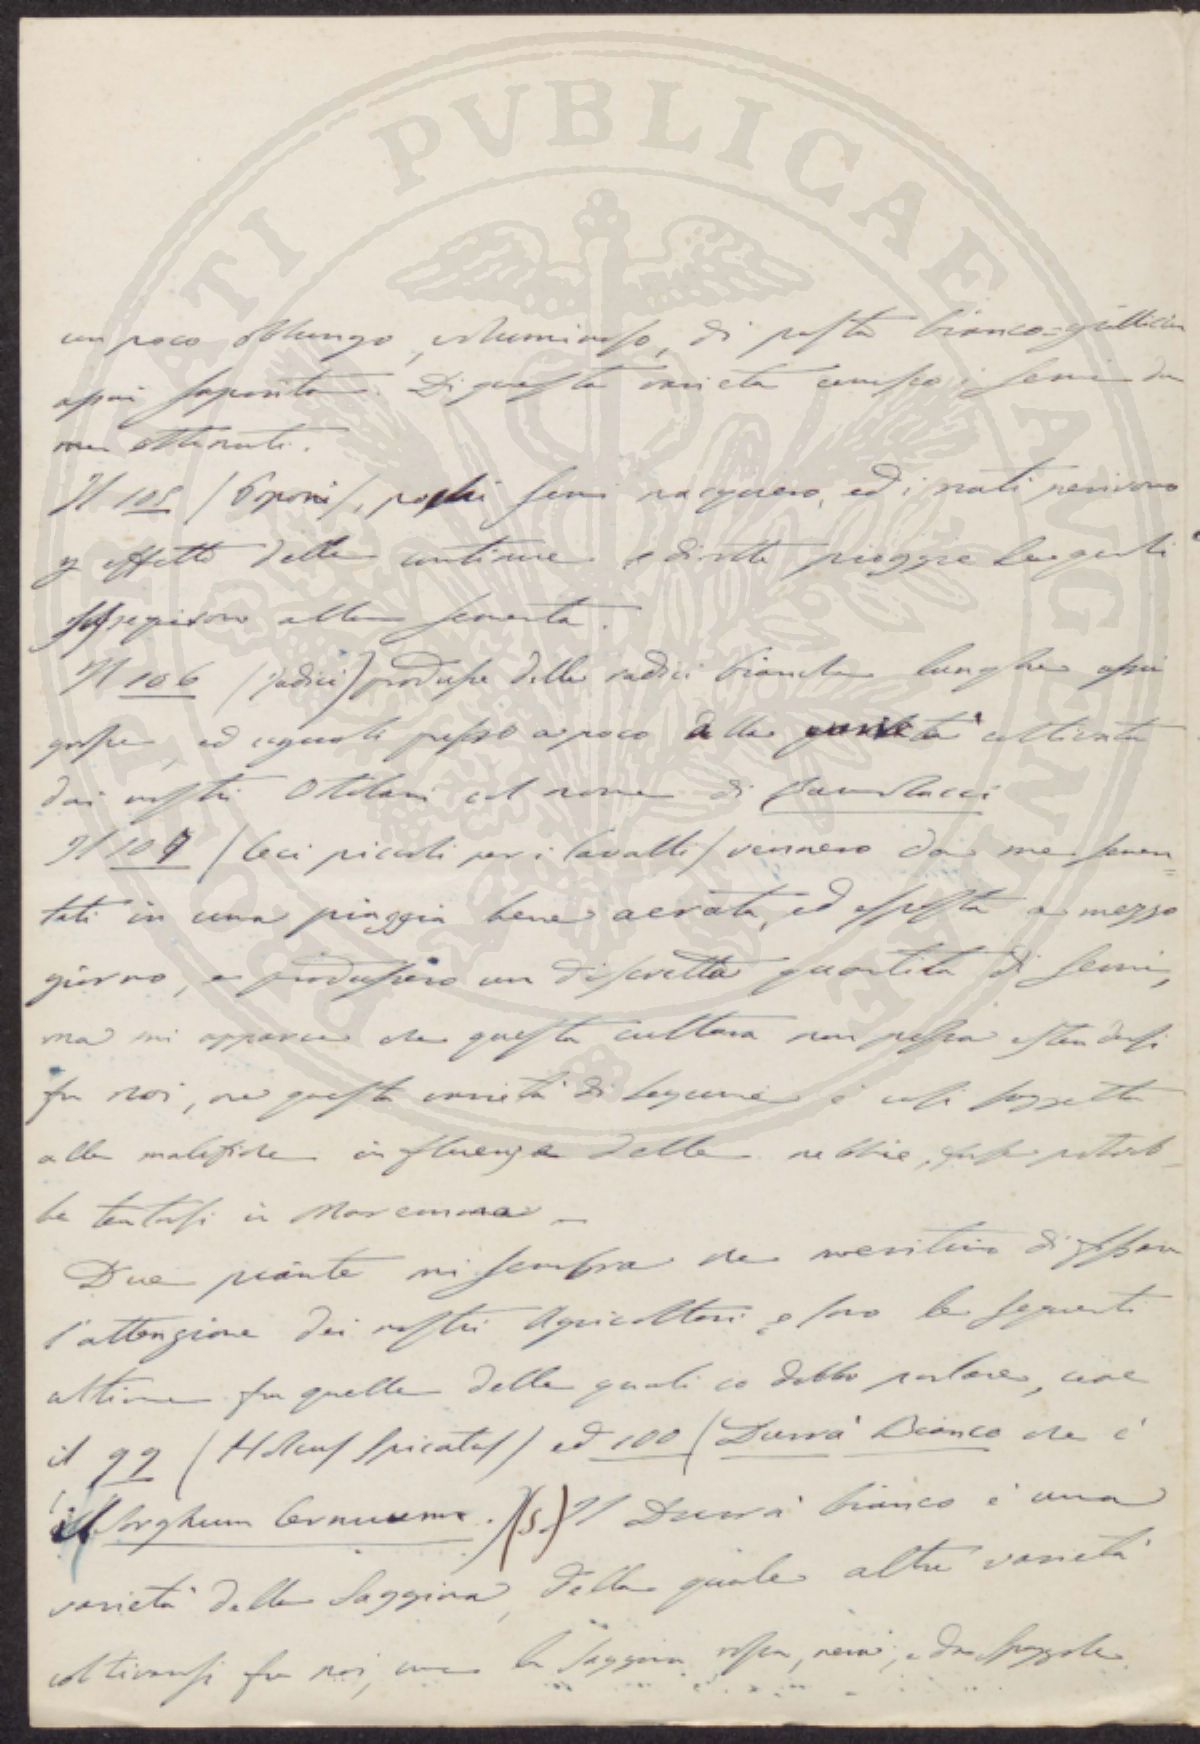 PVBLICAE
un poco oblungo, voluminoso, di pasta bianco=giallicia
assai saporita. Di questa varietà conosco i semi da
me ottenuti.
Il 105 (Poponi), pochi semi nacquero, ed i nati perirono
p effetto delle continue e dirotte pioggie le quali
susseguirono alla sementa.
Il 106 (radici) produsse delle radici bianche lunghe assai
grosse, ed uguali presso a poco alla varietà coltivata
dai nostri Ortolani col nome di
Il 107 (Ceci piccoli per i Cavalli) vennero da me semen=
tati in una piaggia bene aerata, ed esposta a mezzo
giorno, e produssero un discretta quantità di semi,
ma mi apparve che questa cultura non possa estendersi
fra noi, che questa varietà di legume è così soggetta
alla malefica influenza delle nebbie, forse potreb=
be tentarsi in Maremma –
Due piante mi sembra che meritino di fissare
l'attenzione dei nostri Agricoltori, e sono le seguenti
ultime fra quelle delle quali io debbo parlare, cioè
il 99 (Holcus Spicatus) ed 100 (Durrà Bianco che è
il Sorghum Cernuum.)(5) Il Durrà bianco è una
varietà della Saggina, della quale altre varietà
coltivansi fra noi, come la Saggina rossa, nera, e da Spazzole